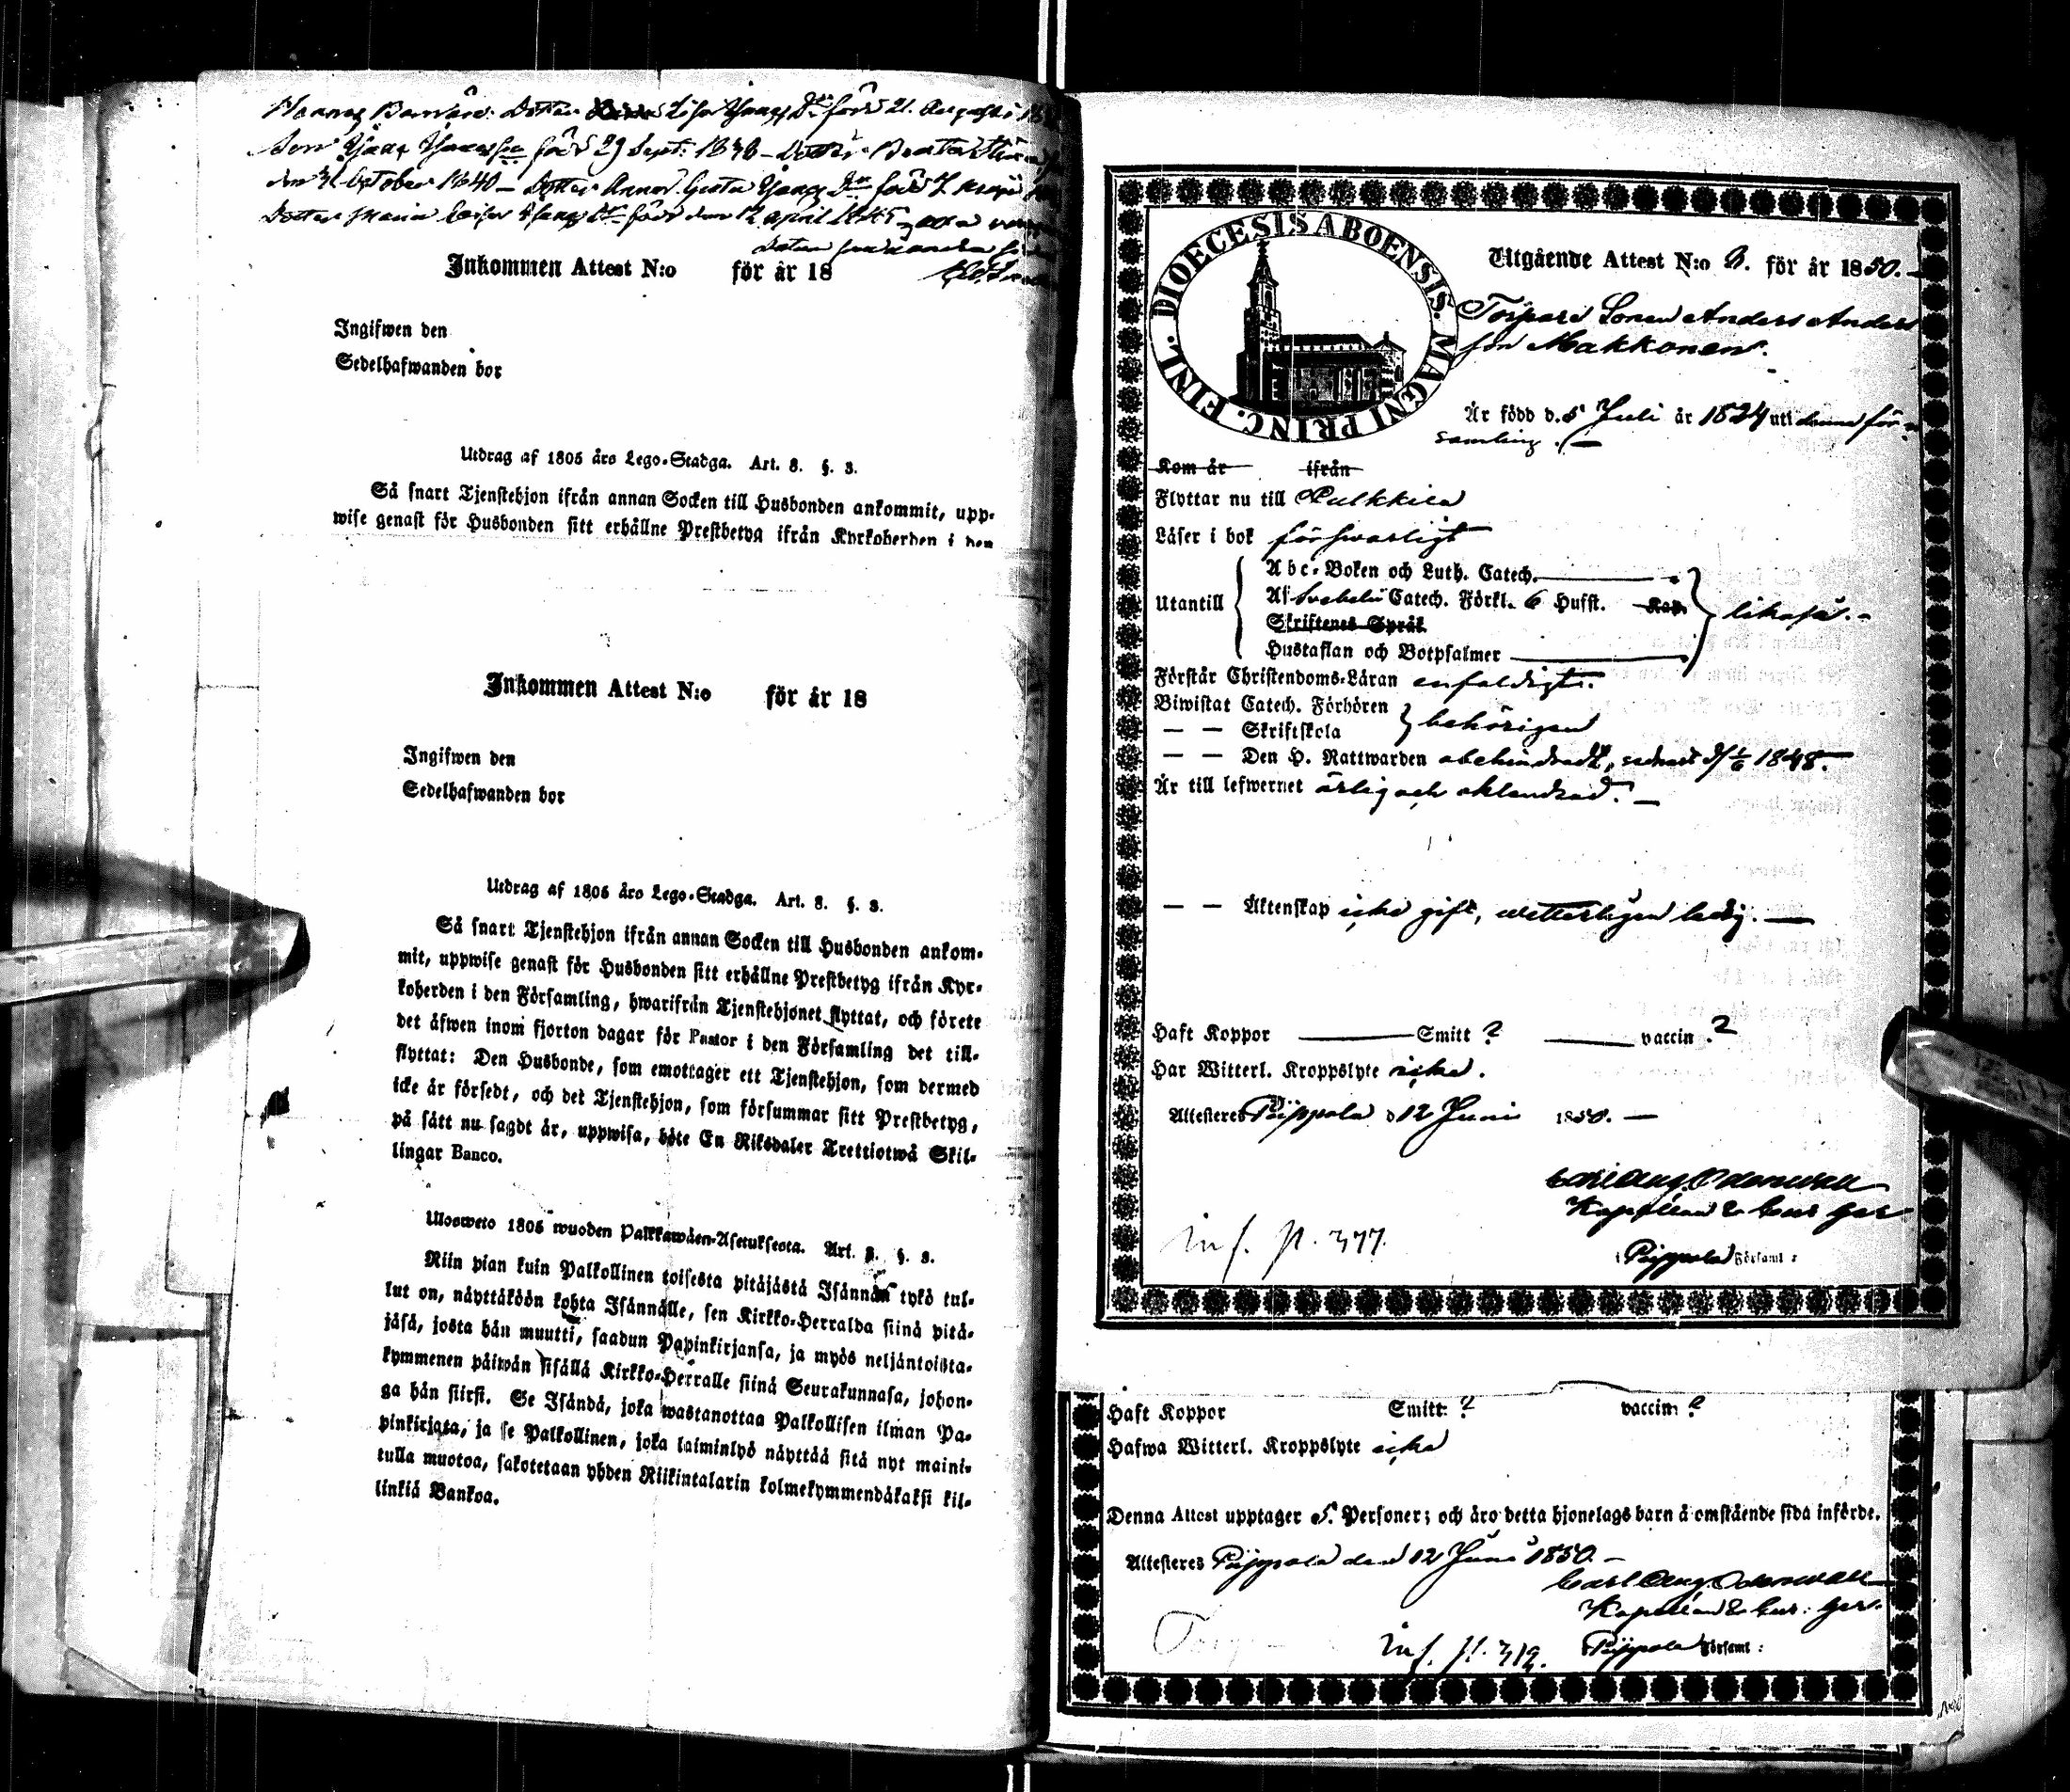 Barnen: Dotter Lisa född 21. Augusti
Son född 29 Sept: 1838 – Dotter Beata
den 31 October 1840 – Dotter Anna Greta född 7
Dotter Maria Lovisa född den 12 April 1845
Inkommen Attest N:o för år 18
Ingifwen den
Sedelhafwanden bor
Utdrag af 1805 års Lego-Stadga. Art. 8. §. 3.
Så snart Tjenstehjon ifrån annan Socken till Husbonden ankommit, upp-
wise genast för Husbonden sitt erhållne Prestbetyg ifrån Kyrkoherden i den
Inkommen Attest N:o för år 18
Ingifwen den
Sedelhafwanden bor
Utdrag af 1805 års Lego-Stadga. Art. 8. §. 3.
Så snart Tjenstehjon ifrån annan Socken till Husbonden ankom-
mit, uppwise genast för Husbonden sitt erhållne Prestbetyg ifrån Kyr-
koherden i den Församling, hwarifrån Tjenstehjonet flyttat, och förete
det äfwen inom fjorton dagar för Pastor i den Församling det till-
flyttat: Den Husbonde, som emottager ett Tjenstehjon, som dermed
icke är försedt, och det Tjenstehjon, som försummar sitt Prestbetyg,
på sätt nu sagdt är, uppwisa, böte En Riksdaler Trettiotwå Skil-
lingar Banco.
Ulosweto 1805 wuoden Palkkawäen-Asetuksesta. Art. 8. §. 3.
Niin pian kuin Palkollinen toisesta pitäjästä Isännän tykö tul-
lut on, näyttäköön kohta Isännälle, sen Kirkko-Herralda siinä pitä-
jäsä, josta hän muutti, saadun Papinkirjansa, ja myös neljäntoista-
kymmenen päiwän sisällä Kirkko-Herralle siinä Seurakunnasa, johon-
ga hän siirst. Se Isändä, joka wastanottaa Palkollisen ilman Pa-
pinkirjata, ja se Palkollinen, joka laiminlyö näyttää sitä nyt maini-
tulla muotoa, sakotetaan yhden Riikintalarin kolmekymmendäkaksi kil-
linkiä Bankoa.
DIOECESIS ABOENSIS. MAGNI PRINC. FINL.
Utgående Attest N:o 3. för år 1850.
Torpare Sonen Anders Anders
son Makkonen.
Är född d. 5 Juli år 1824 uti denna för-
samling.
Kom år ifrån
Flyttar nu till Pulkkila
Läser i bok förswarligt
Utantill
Abc-Boken och Luth. Catech.
Af Svebelii Catech. Förkl. 6 Hufst. Kap.
Skriftenes Språk
Hustaflan och Botpsalmer
likaså.
Förstår Christendoms-Läran enfaldigt.
Biwistat Catech. Förhören
— — Skriftskola
behörigen
— — Den H. Nattwarden obehindradt, sednast d. 1/6 1848.
Är till lefwernet ärlig och oklandrad.
— — Äktenskap icke gift, wetterligen ledig.
Haft Koppor Smitt ? vaccin ?
Har Witterl. Kroppslyte icke.
Attesteres Piippola d 12 Juni 1850.
Carl Aug. Odenwall
Kapellan & Cur. Ger
i Piippola Församl:
Inf. p. 377.
Haft Koppor Smitt: ? vaccin: ?
Hafwa Witterl. Kroppslyte icke
Denna Attest upptager 5. Personer; och äro detta hjonelags barn å omstående sida införde.
Attesteres Piippola den 12 Juni 1850.
Carl Aug. Odenwall
Kapellan & Cur: Ger.
Inf. p. 319. Piippola Församl: